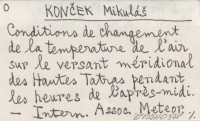 O
KONČEK Mikuláš
Conditions de changement
de la temperature de l'air
sur le versant méridional
des Hautes Tatras pendant
les heures de l'après-midi.
— Intern. Assoc. Meteor.